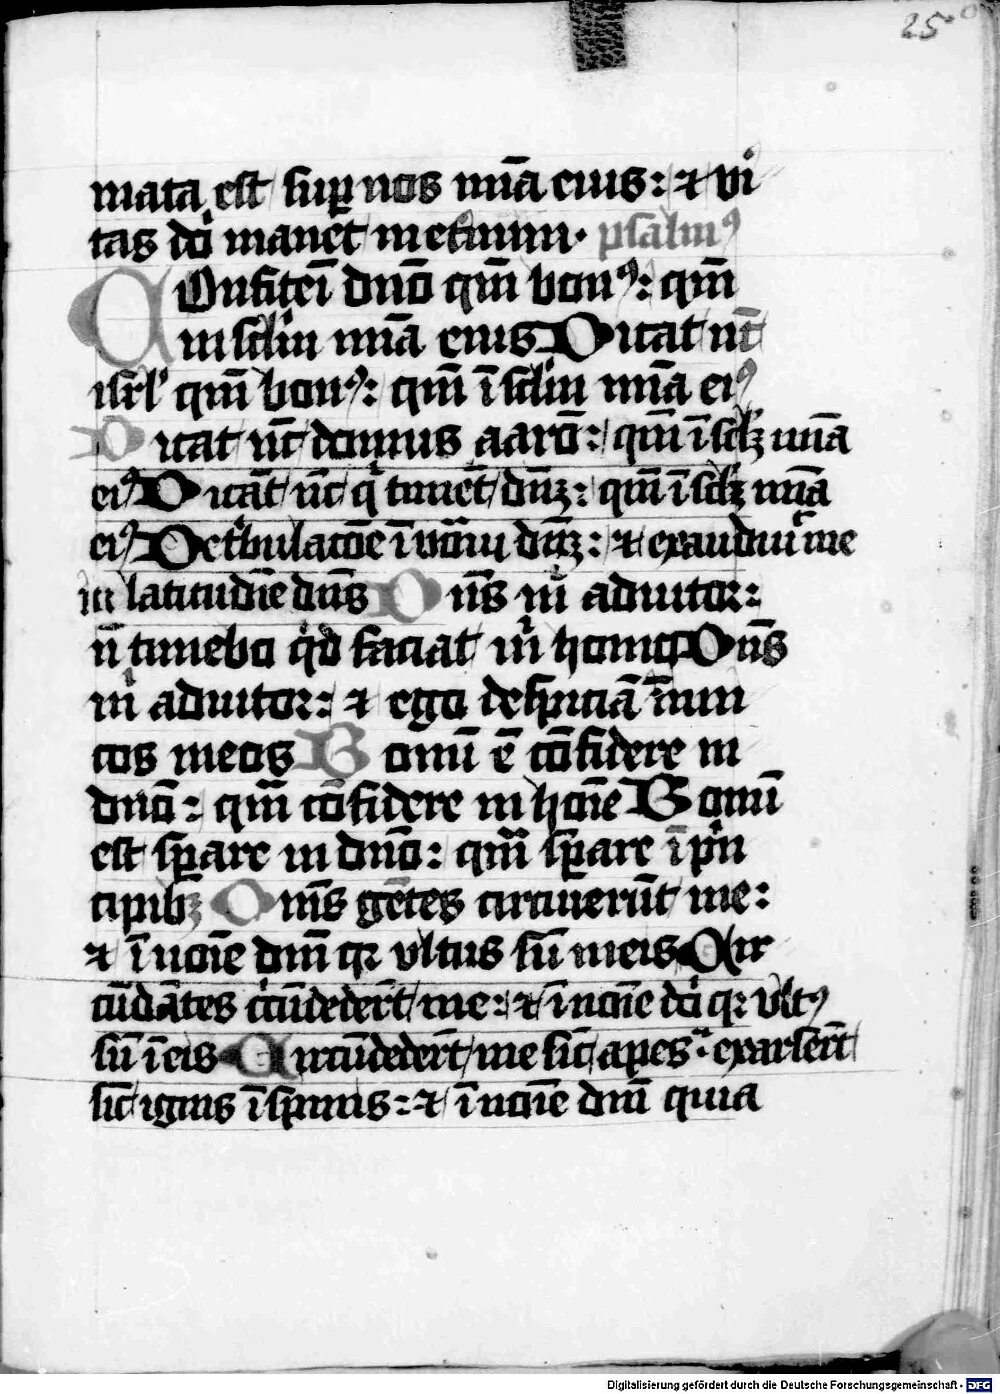 25
mata est sup nos mīa eius: ⁊ vi
tas dei manet in etnum. psalmꝰ
Confitēi dn̄o qm̄ bonꝰ: qm̄
in sclm mīa eius Dicat nūc
isrl' qm̄ bonꝰ: qm̄ ī sclm mīa eiꝰ
Dicat nūc domus aarō: qm̄ ī sclꝫ mīa
eiꝰ Dicāt nūc q timēt dn̄ꝫ: qm̄ ī sclꝫ mīa
eiꝰ De tbulacōe īuocaui dn̄ꝫ: ⁊ exaudiuit me
in latitudīe dn̄s Dn̄s m adiutor:
n̄ timebo qd faciat m homo Dn̄s
m adiutor: ⁊ ego despiciā īimi
cos meos Bonū ē cōfidere in
dn̄o: qm̄ cōfidere in hoīe Bonū
est sperare in dn̄o: qm̄ sperare ī prin
cipibꝫ Om̄s gētes circuierūt me:
⁊ ī noīe dn̄i qꝛ vltus sū in eis Cir
cūdātes circūdedert me: ⁊ ī noīe dei qꝛ vltꝰ
sū ī eis Circūdedert me sic apes: exarsert
sic ignis ī spinis: ⁊ ī noīe dn̄i quia
Digitalisierung gefördert durch die Deutsche Forschungsgemeinschaft - DFG